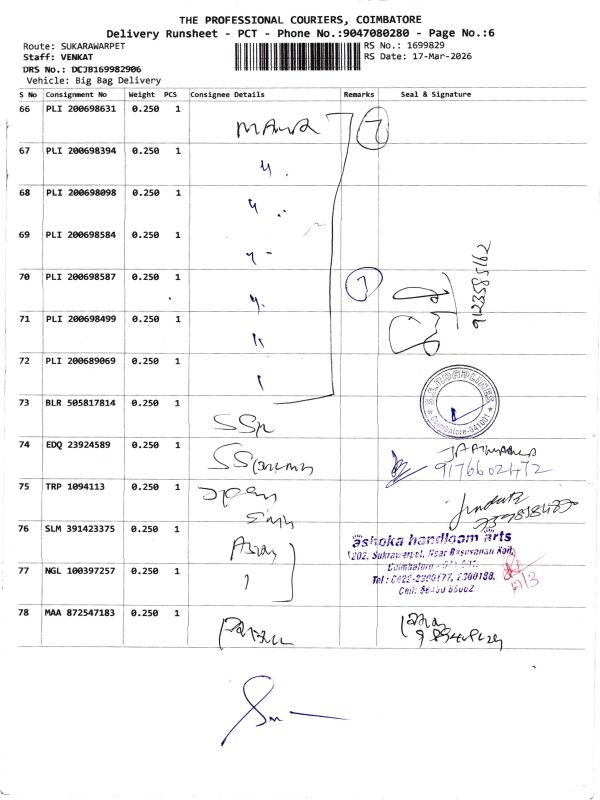 THE PROFESSIONAL COURIERS, COIMBATORE
Delivery Runsheet - PCT - Phone No.:9047080280 - Page No.:6
Route: SUKARAWARPET
RS No.: 1699829
Staff: VENKAT
RS Date: 17-Mar-2026
DRS No.: DCJB169982906
Vehicle: Big Bag Delivery
S No Consignment No Weight PCS Consignee Details Remarks Seal & Signature
66 PLI 200698631 0.250 1 7
67 PLI 200698394 0.250 1 "
68 PLI 200698098 0.250 1 "
69 PLI 200698584 0.250 1 "
70 PLI 200698587 0.250 1 " 7
9123585162
71 PLI 200698499 0.250 1 "
72 PLI 200689069 0.250 1
73 BLR 505817814 0.250 1
Coimbatore-641001
74 EDQ 23924589 0.250 1
9176602472
75 TRP 1094113 0.250 1
76 SLM 391423375 0.250 1
ashoka handloom arts
202, Sukrawarpet, Near Basuvanan Koil,
Coimbatore
77 NGL 100397257 0.250 1
Tel : 0422-2300177, 2300188.
Cell:
17/3
78 MAA 872547183 0.250 1